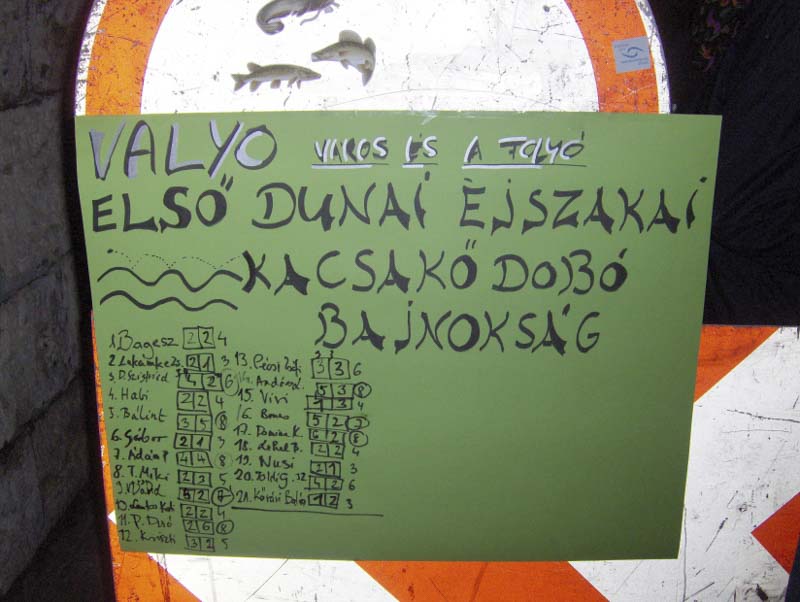 VALYO VÁROS ÉS A FOLYÓ
ELSŐ DUNAI ÉJSZAKAI
KACSAKŐ DOBÓ
BAJNOKSÁG
1. Bagesz 2 2 4
2 1 3
4 2 6
4. Habi 2 2 4
5. Bálint 3 5 8
6. Gábor 2 1 3
7. Ádám P 4 4 8
8. T. Miki 2 3 5
5 2 7
2 2 4
11. P. Dasó 2 6 8
12. Kriszti 3 2 5
13. 3 3 6
5 3 8
15. Vivi 1 3 4
16. 5 2 7
17. Dominik K. 6 2 8
18. 2 2 4
19. Nusi 2 1 3
20. Zoldi G. 4 2 6
21. Kőtári 1 2 3